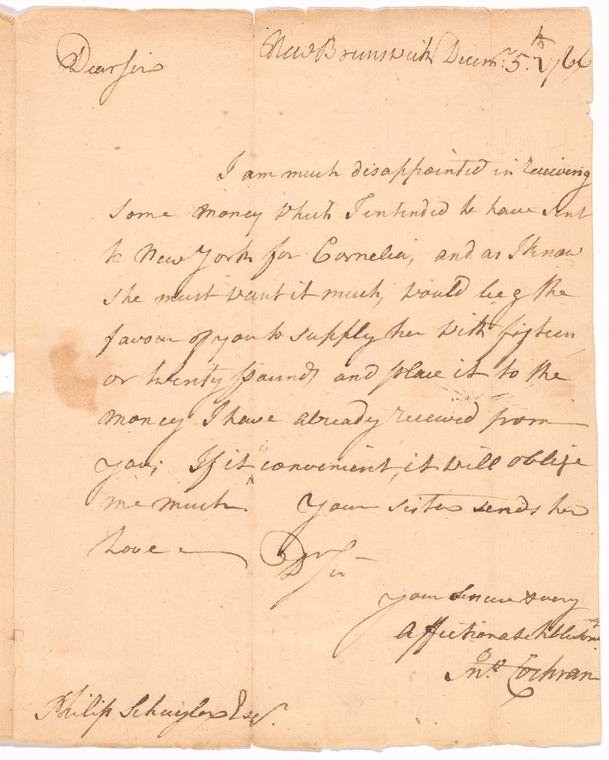 New Brunswick Decem.r 5.th 1766
Dear Sir
I am much disappointed in receiving
some money which I intended to have sent
to New York for Cornelia, and as I know
she must want it much, would beg the
favour of you to supply her with fifteen
or twenty Pounds and place it to the
money I have already received from
you; If it convenient, it will oblige
me much. Your sister sends her
Love
D.r Sir
Your sincere & very
Affectionate
Jn.o Cochran
Philip Schuyler Esq.r